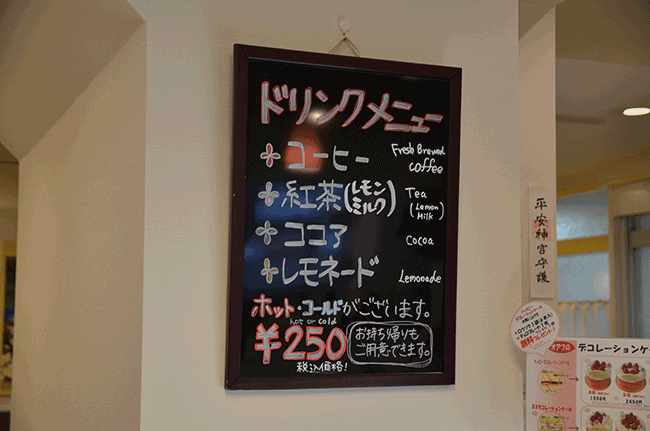 ドリンクメニュー
コーヒー Fresh Brewed coffee
紅茶(レモン ミルク) Tea (Lemon Milk)
ココア Cocoa
レモネード Lemonade
ホット・コールドがございます。
hot or cold
¥250 お持ち帰りも ご用意できます。
税込価格!
平安神宮守護
無料プレゼント!
デコレーションケー
1350円
2450円